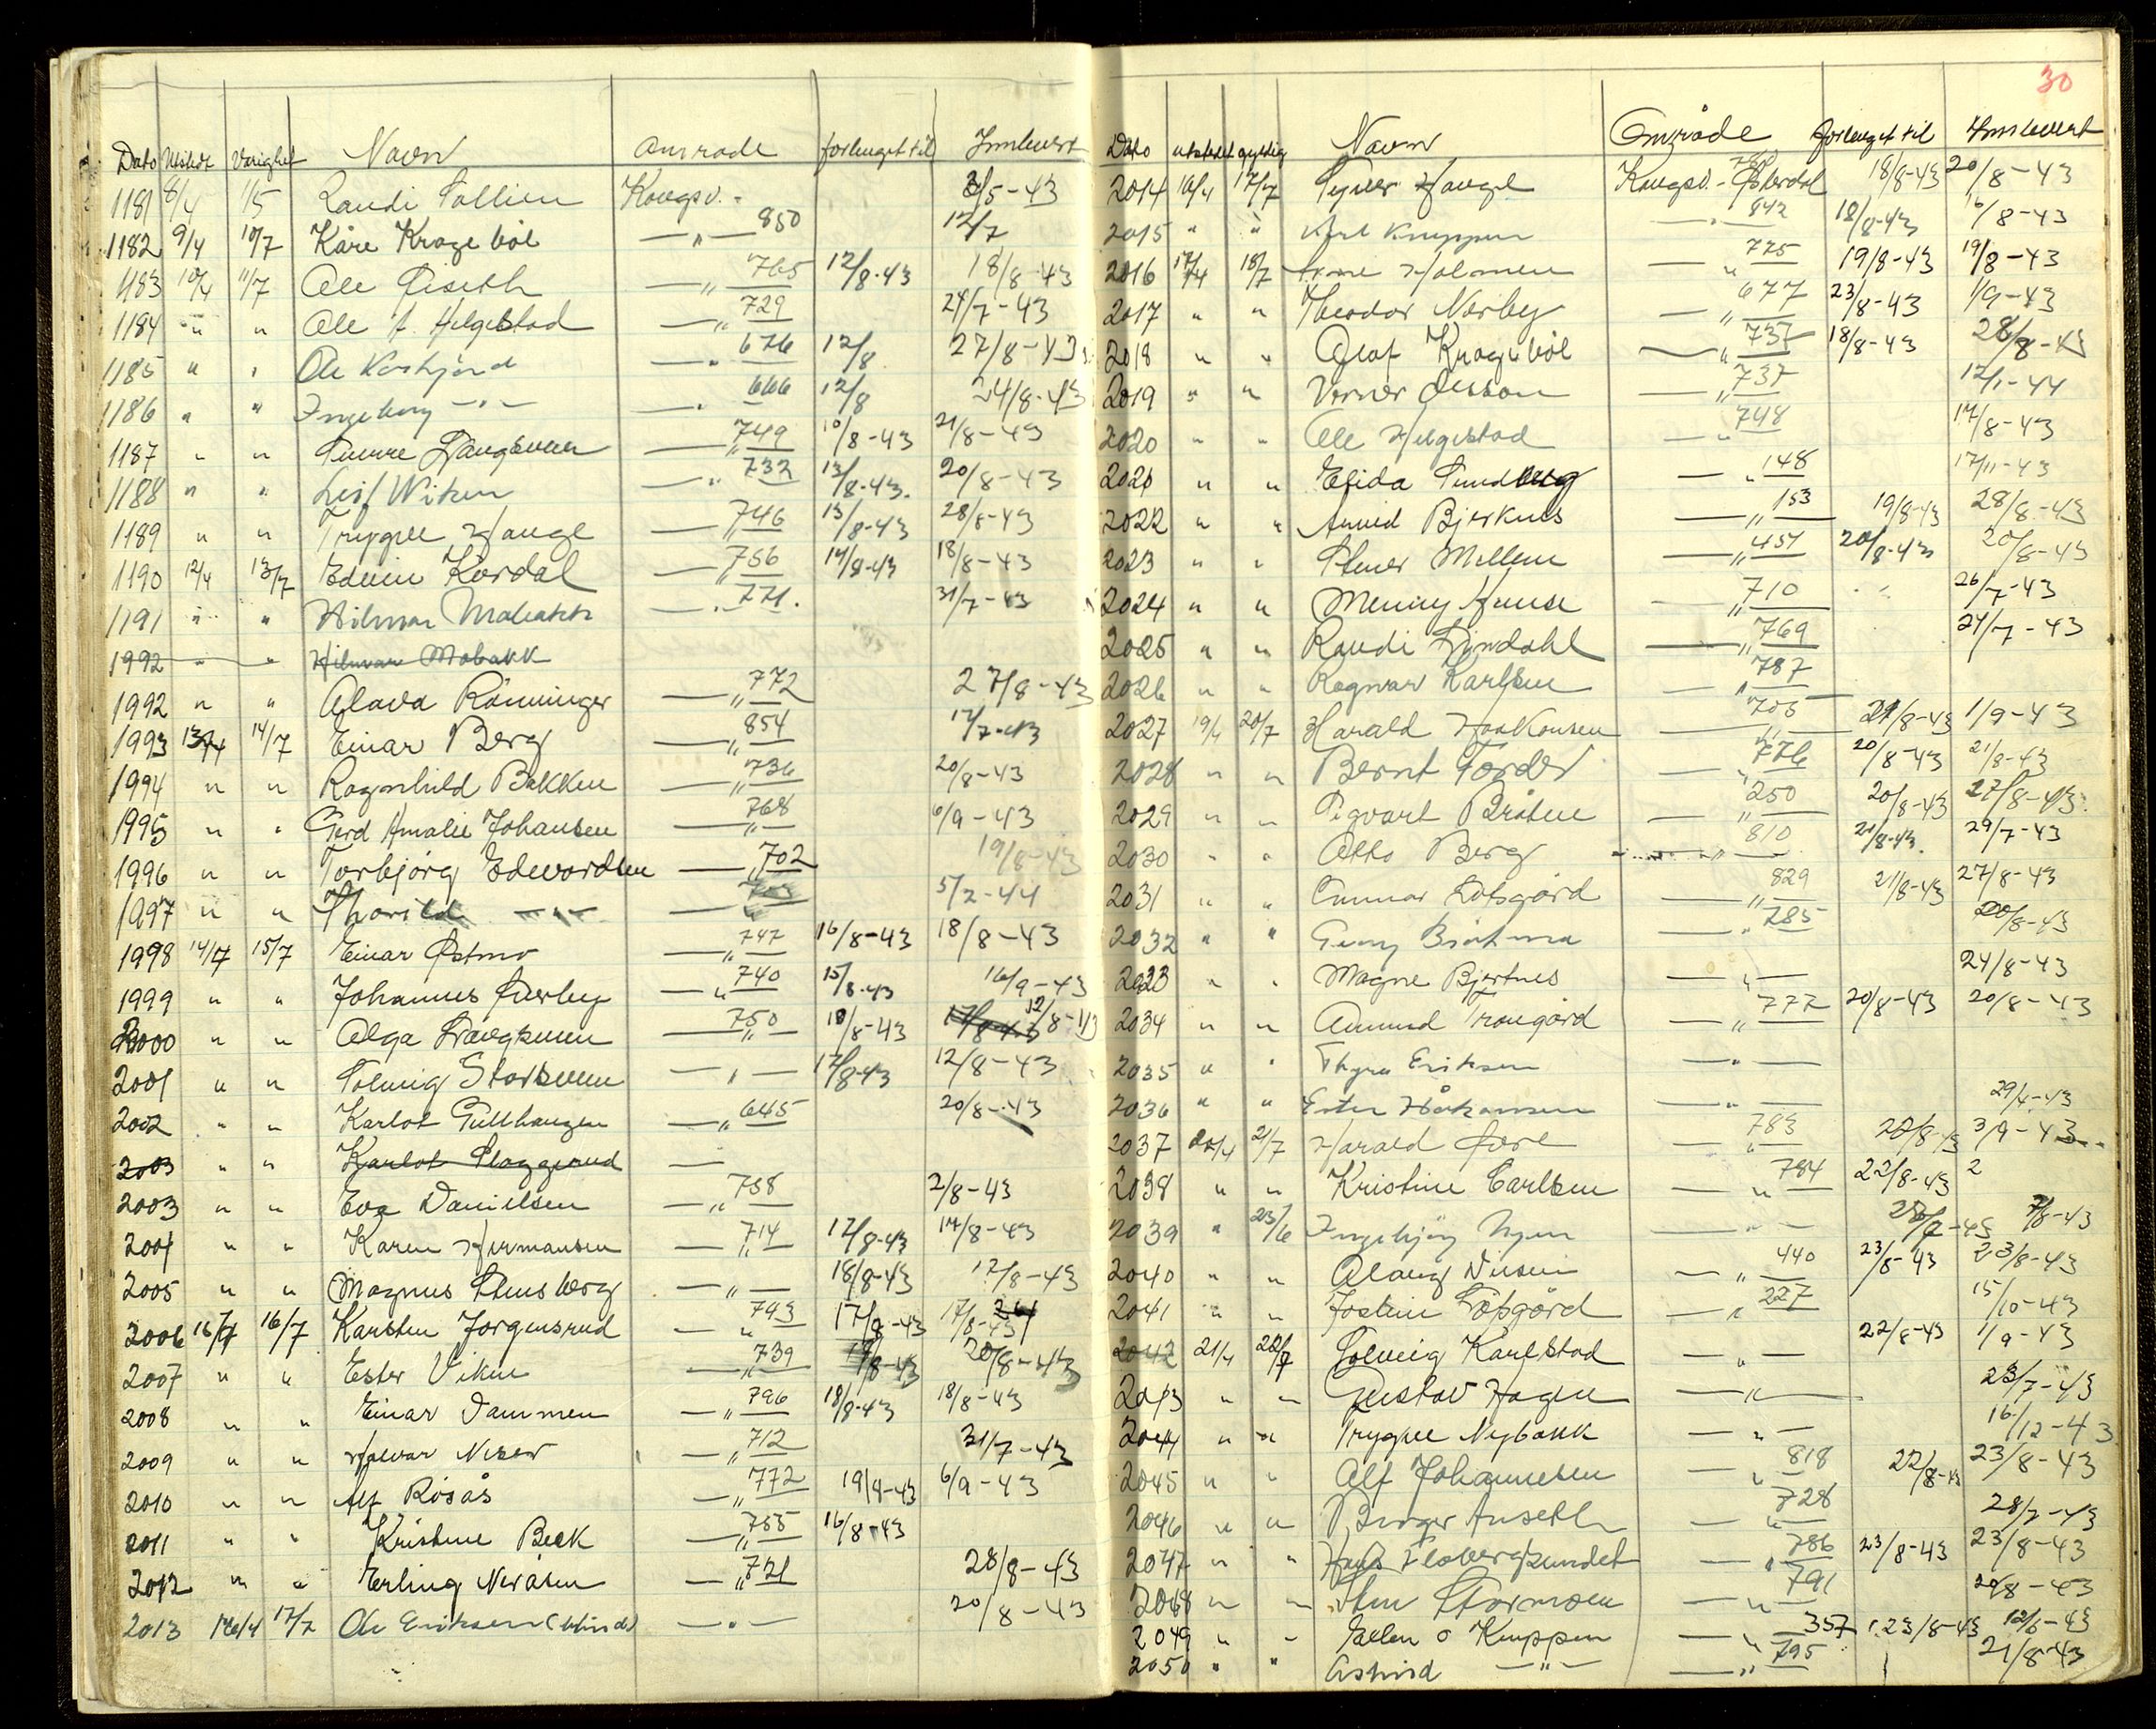 Dato Utstedt Varighet Navn Område forlenget til Innlevert
1181 8/4 1/5 Randi Sollien Kongsv. - 3/5-43
1182 9/4 10/7 Kåre Kragebøl — " — 850 12/7
1183 10/4 11/7 Ole Liseth — " 765 12/8-43 18/8-43
1184 " " Ole A. Helgestad — " 729 24/7-43
1185 " " Ole — " 676 12/8 27/8-43
1186 " " Ingeborg — " — — " 666 12/8 24/8-43
1187 " " Sverre Langseven — " 749 10/8-43 21/8-43
1188 " " Leif Wiken — " 732 13/8-43. 20/8-43
1189 " " Trygve Hauge — 746 13/8-43 28/8-43
1190 12/4 13/7 Edvin Kordal — " 756 14/8-43 18/8-43
1191 " " Hilmar Mobakk — " 771. 31/7-43
1992 " " Hilmar Mobakk
1992 " " Olava Rønninger — " 772 27/8-43
1993 13/4 14/7 Einar Berg — " 854 17/7-43
1994 " " Ragnhild Bakken — " 736 20/8-43
1995 " " Gerd Amalie Johansen — " 768 6/9-43
1996 " " Torbjørg Edvardsen — " 702 19/8-43
1997 " " Thorild — " — — " 5/2-44
1998 14/7 15/7 Einar Østmo — " 747 16/8-43 18/8-43
1999 " " Johannes — " 740 15/8-43 16/9-43
2000 " " Olga Langseven — " 750 18/8-43 12/8-43
2001 " " Solveig Storsveen — " — 12/8-43 12/8-43
2002 " " Karlot Gullhaugen — " 645 20/8-43
2003 " " Karlot —
2003 " " Eva Danielsen — " 758 2/8-43
2004 " " Karen Hermansen — " 714 17/8-43 14/8-43
2005 " " Magnus Stensberg — " — 18/8-43 17/8-43
2006 16/4 16/7 Karsten Jorgensrud — " 743 17/8-43 17/8-43
2007 " " Ester Viken — " 739 20/8-43
2008 " " Einar Dammen — " 796 18/8-43 18/8-43
2009 " " Halvar Niser — " 712 31/7-43
2010 " " Alf Rosås — " 772 19/8-43 6/9-43
2011 " " Kristine Beck — " 755 16/8-43
2012 " " Erling Neråsen — " 721 28/8-43
2013 16/4 17/7 Ole Eriksen (blind) — " — 20/8-43
30
Dato utstedt gyldig Navn Område forlenget til Innlevert
2014 16/4 17/7 Syver Hauge Kongsv. - Østerdal 18/8-43 20/8-43
2015 " " Karl Knappen — " 842 18/8-43 16/8-43
2016 17/4 18/7 Arne Holmen — " 775 19/8-43 19/8-43
2017 " " Theodor Nørby — " 677 23/8-43 1/9-43
2018 " " Olaf Kragebøl — " 737 18/8-43 28/8-43
2019 " " Verner Olsson — " 737 12/1-44
2020 " " Ole Helgestad — " 748 17/8-43
2021 " " Elida Sundberg — " 148 17/11-43
2022 " " Amund Bjerknes — " 153 19/8-43 28/8-43
2023 " " Stener Mellem — " 457 20/8-43 20/8-43
2024 " " Menny Hanse — " 710 26/7-43
2025 " " Randi Lindahl — " 769 24/7-43
2026 " " Ragnar Karlsen — " 787
2027 19/4 20/7 Harald Haakonsen — " 705 21/8-43 1/9-43
2028 " " Bernt Torder — " 776 20/8-43 21/8-43
2029 " " Sigvart Bråten — " 250 20/8-43 27/8-43
2030 " " Otto Berg — " 810 21/8-43. 29/7-43
2031 " " Gunnar Lobsgård — " 829 21/8-43 27/8-43
2032 " " Georg — " 285 20/8-43
2033 " " Magne Bjertnes — " — 24/8-43
2034 " " Amund Trongård — " 777 20/8-43 20/8-43
2035 " " Thyra Eriksen — " —
2036 " " Ester Håkansen — " — 29/4-43
2037 20/4 21/7 Harald — " 783 20/8-43 3/9-43
2038 " " Kristine Carlsen — " 784 22/8-43 2
2039 " 23/6 Ingebjørg Nyen — " — 7/8-43
2040 " " Olaug Nilsen — " 440 23/8-43 23/8-43
2041 " " Jostein Lobsgård — " 227 15/10-43
2042 21/4 22/7 Solveig Karlstad — " — 22/8-43 1/9-43
2043 " " Gustav Hagen — " — 23/7-43
2044 " " Trygve Nybakk — " — 16/12-43
2045 " " Alf Johannesen — " 818 22/8-43 23/8-43
2046 " " Birger Anseth — " 728 28/7-43
2047 " " Flobergsundet — " 786 23/8-43 23/8-43
2048 " " Sten Stormoen — " 791 20/8-43
2049 " " Ellen o Knappen — " 357 23/8-43 12/6-43
2050 " " Astrid — " — — " 795 21/8-43